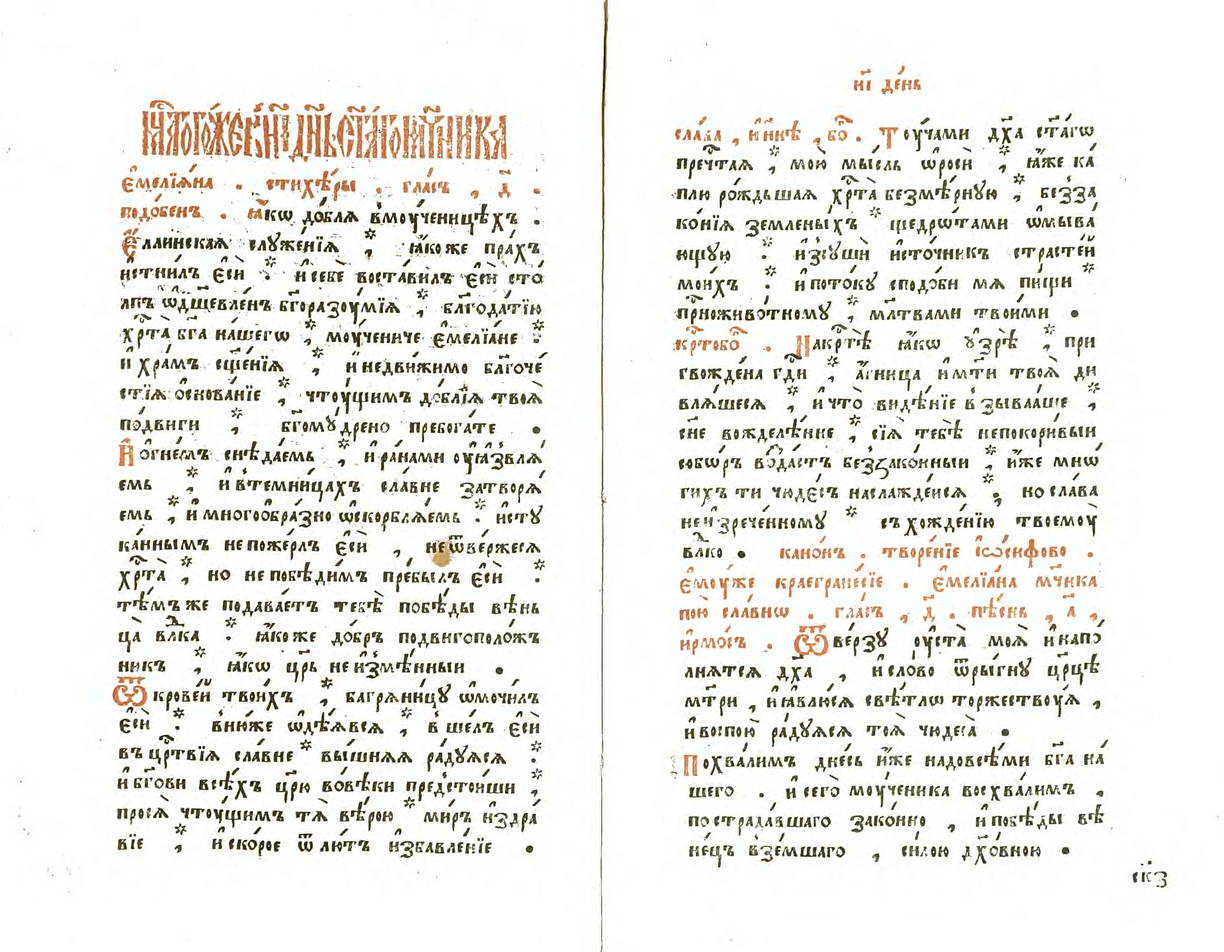 мц҃а тогѡ́же въ н҃і дн҃ь ст҃а́го мч҃ника
є҆меліѧ́на . стихѣ́ры . гла́съ , д҃ .
подо́бенъ . ꙗ҆́кѡ до́блѧ вмоученицѣ́хъ .
Є҆́ллинскаѧ слꙋже́нїѧ ⁎ ꙗ҆́коже пра́хъ
и҆стни́лъ є҆сѝ ⁎ и҆ себѐ воста́вилъ є҆сѝ сто́
лпъ ѡ҆дш҃евле́нъ бг҃оразоу́мїѧ ⁎ благода́тїю
хрⷭ҇та̀ бг҃а на́шегѡ ⁎ моу́чениче є҆меліѧ́не ⁎
и҆ хра́мъ сщ҃е́нїѧ ⁎ и҆ недви́жимо благоче́
стїѧ ѡ҆снова́нїе ⁎ чтоу́щимъ дѡ́блїѧ твоѧ̀
по́двиги ⁎ бг҃омꙋ́дрено пребога́те .
И҆ ѻ҆гне́мъ снѣда́емь ⁎ и҆ ра́нами оу҆ꙗзвлѧ́
емь ⁎ и҆ втемни́цахъ сла́вне затворѧ́
емь ⁎ и҆ многоѻбра́зно ѡ҆скорблѧ́емь ⁎ и҆стꙋ
ка́ннымъ непоже́рлъ є҆сѝ , неѿве́ржесѧ
хрⷭ҇та̀ ⁎ но непобѣди́мъ пребы́лъ є҆сѝ ⁎
тѣ́мъже подава́етъ тебѣ̀ побѣ́ды вѣнь
ца̀ влⷣка ⁎ ꙗ҆́коже до́бръ подвигополо́ж
никъ ⁎ ꙗ҆́кѡ цр҃ь неи҆змѣ́нныи .
Ѿ крове́й твои́хъ ⁎ багрѧни́цꙋ ѡ҆мочи́лъ
є҆сѝ ⁎ вню́же ѡ҆дѣ́ѧвсѧ ⁎ вше́лъ є҆сѝ
въ црⷭ҇твїѧ сла́вне ⁎ вы́шнѧѧ ра́дꙋѧсѧ ⁎
и҆ бг҃ови всѣ́хъ цр҃ю вовѣ́ки предстои́ши ⁎
просѧ̀ чтоу́щимъ тѧ̀ вѣ́рою ⁎ ми́ръ и҆ здра́
вїе ⁎ и҆ ско́рое ѿ лю́тъ и҆збавле́нїе .
н҃і де́нь
сла́ва , и҆ ны́нѣ , бо҃ . Тоу́чами дх҃а ст҃а́гѡ
преч҃таѧ ⁎ мою̀ мы́сль ѡ҆росѝ ⁎ ꙗ҆́же ка́
плю ро́ждьшаѧ хрⷭ҇та̀ безмѣ́рнꙋю ⁎ безза
ко́нїѧ земле́ныхъ ⁎ щедрѡ́тами ѡ҆мыва́
ющꙋю ⁎ и҆зсꙋшѝ и҆сто́чникъ страсте́й
мои́хъ ⁎ и҆ пото́кꙋ сподо́би мѧ пи́щи ⁎
присноживо́тномꙋ , мл҃твами твои́ми .
крⷭ҇тобо҃ . Накрⷭ҇тѣ̀ ꙗ҆́кѡ ᲂу҆зрѣ̀ ⁎ при
гвожде́на гдⷭ҇и ⁎ а҆́гница и҆ мт҃и твоѧ̀ ди
влѧ́шесѧ ⁎ и҆ что̀ видѣ́нїе взыва́аше ⁎
сн҃е вожделѣ́нне ⁎ сїѧ̀ тебѣ̀ непокори́выи
собѡ́ръ во́здастъ беззако́нныи ⁎ и҆́же мнѡ́
гихъ ти чюде́съ наслажде́йсѧ ⁎ но сла́ва
неи҆зрече́нномꙋ ⁎ съхожде́нїю твоемоу̀
влⷣко . кано́нъ . творе́нїе і҆ѡ́сифово .
є҆моу́же краегране́сїе . є҆меліѧ́на мч҃ника
пою̀ сла́внѡ . гла́съ , д҃ . пѣ́снь , а҃ ,
і҆рмо́съ . Ѿве́рзꙋ оу҆ста̀ моѧ̀ и҆ напо́
лнѧтсѧ дх҃а , и҆ сло́во ѿры́гнꙋ цр҃цѣ
мт҃ри , и҆ ꙗ҆влю́сѧ свѣ́тлѡ торжествоу́ѧ ,
и҆ воспою̀ ра́дꙋѧсѧ тоѧ̀ чюдеса̀ .
Похва́лимъ дне́сь и҆́же надовсѣ́ми бг҃а на́
шего . и҆ сего̀ моу́ченика восхва́лимъ ,
пострада́вшаго зако́нно , и҆ побѣ́ды вѣ
не́цъ взе́мшаго , си́лою дх҃о́вною .
ск҃з